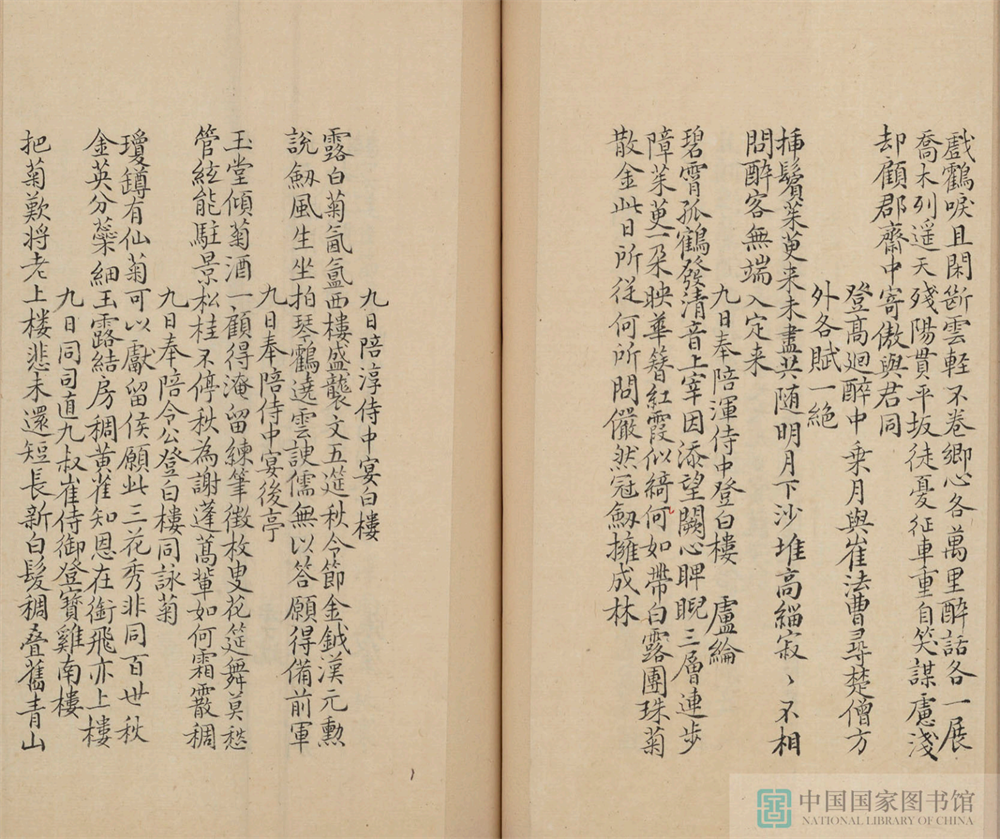 戲鶴唳且閑斷雲輕不卷鄉心各萬里醉話各一展
喬木列遥天殘陽貫平坂徒憂征車重自笑謀慮淺
却顧郡齋中寄傲與君同
登髙迴醉中乘月與崔法曹尋楚僧方
外各賦一絶
揷鬢茱萸来未盡共随明月下沙堆高緇寂〻不相
問醉客無端入定来
九日奉陪渾侍中登白樓　盧綸
碧霄孤鶴發清音上宰因添望闕心睥睨三層連步
障茱萸一朶映華簪紅霞似綺何如帶白露團珠菊
散金此日所從何所問儼然冠劔擁成林
九日陪淳侍中宴白樓
露白菊氤氲西樓盛襲文五筵秋令節金鉞漢元勲
說劔風生坐拍琴鶴遶雲諛儒無以答願得備前軍
九日奉陪侍中宴後亭
玉堂傾菊酒一顧得淹留練筆徵枚叟花筵舞莫愁
管絃能駐景松桂不停秋為謝蓬蒿輩如何霜霰稠
九日奉陪令公登白樓同詠菊
瓊罇有仙菊可以獻留侯願此三花秀非同百世秋
金英分蘂細玉露結房稠黃雀知恩在銜飛亦上樓
九日同司直九叔崔侍御登寶雞南樓
把菊歎将老上樓悲未還短長新白髮稠叠舊青山
中国国家图书馆
NATIONAL LIBRARY OF CHINA